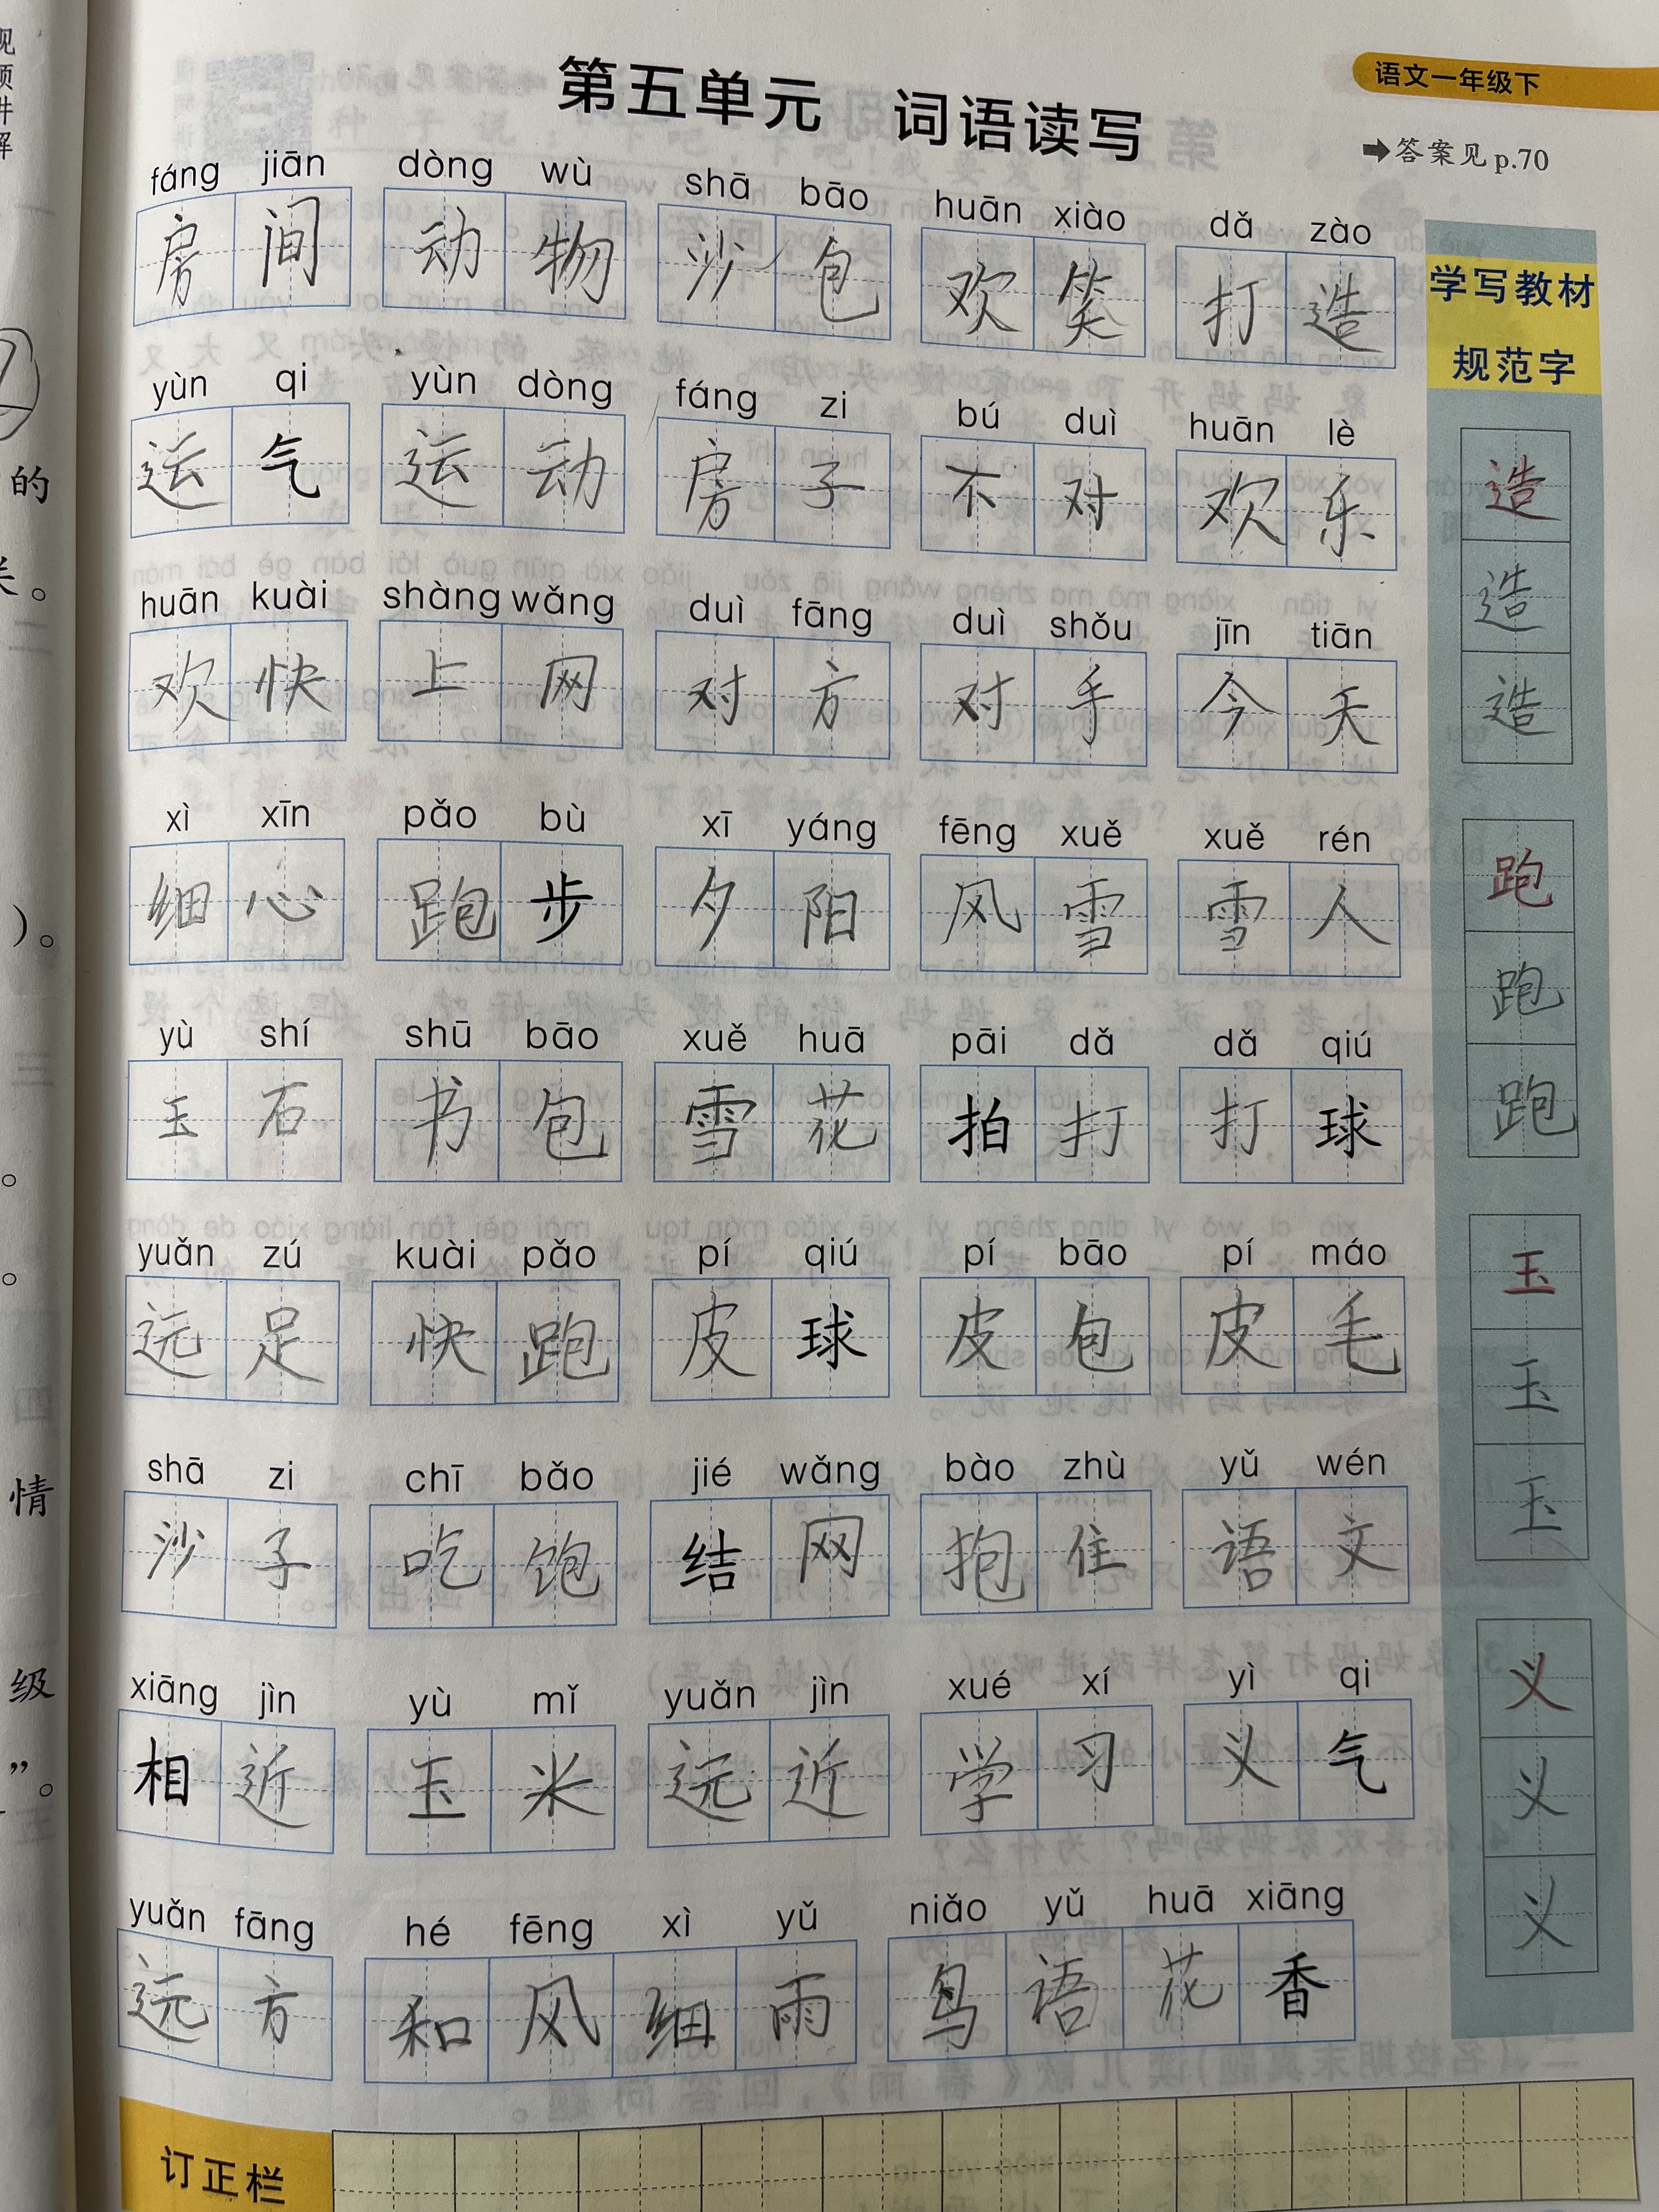 第五单元 词语读写
语文一年级下
➡答案见 p.70
fáng jiān dòng wù shā bāo huān xiào dǎ zào
房间 动物 沙包 欢笑 打造
yùn qi yùn dòng fáng zi bú duì huān lè
运气 运动 房子 不对 欢乐
huān kuài shàng wǎng duì fāng duì shǒu jīn tiān
欢快 上网 对方 对手 今天
xì xīn pǎo bù xī yáng fēng xuě xuě rén
细心 跑步 夕阳 风雪 雪人
yù shí shū bāo xuě huā pāi dǎ dǎ qiú
玉石 书包 雪花 拍打 打球
yuǎn zú kuài pǎo pí qiú pí bāo pí máo
远足 快跑 皮球 皮包 皮毛
shā zi chī bǎo jié wǎng bào zhù yǔ wén
沙子 吃饱 结网 抱住 语文
xiāng jìn yù mǐ yuǎn jìn xué xí yì qi
相近 玉米 远近 学习 义气
yuǎn fāng hé fēng xì yǔ niǎo yǔ huā xiāng
远方 和风细雨 鸟语花香
订正栏
学写教材
规范字
造
造
造
跑
跑
跑
玉
玉
玉
义
义
义
的
。
)。
。
。
情
级
”。